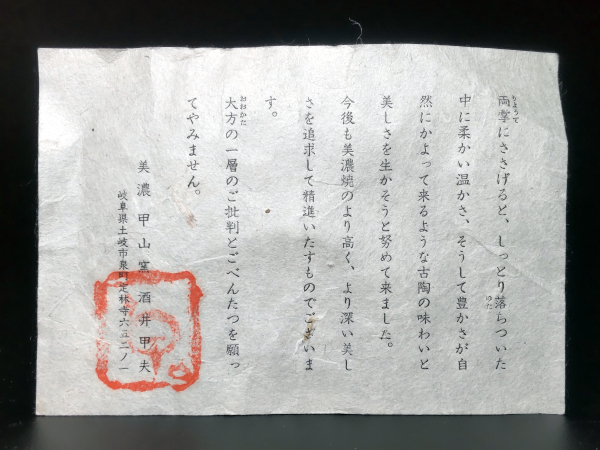 両掌にささげると、しっとり落ちついた
中に柔かい温かさ、そうして豊かさが自
然にかよって来るような古陶の味わいと
美しさを生かそうと努めて来ました。
今後も美濃焼のより高く、より深い美し
さを追求して精進いたすものでございま
す。
大方の一層のご批判とごべんたつを願っ
てやみません。
美濃 甲山窯 酒井甲夫
岐阜県土岐市泉町定林寺六五二ノ一